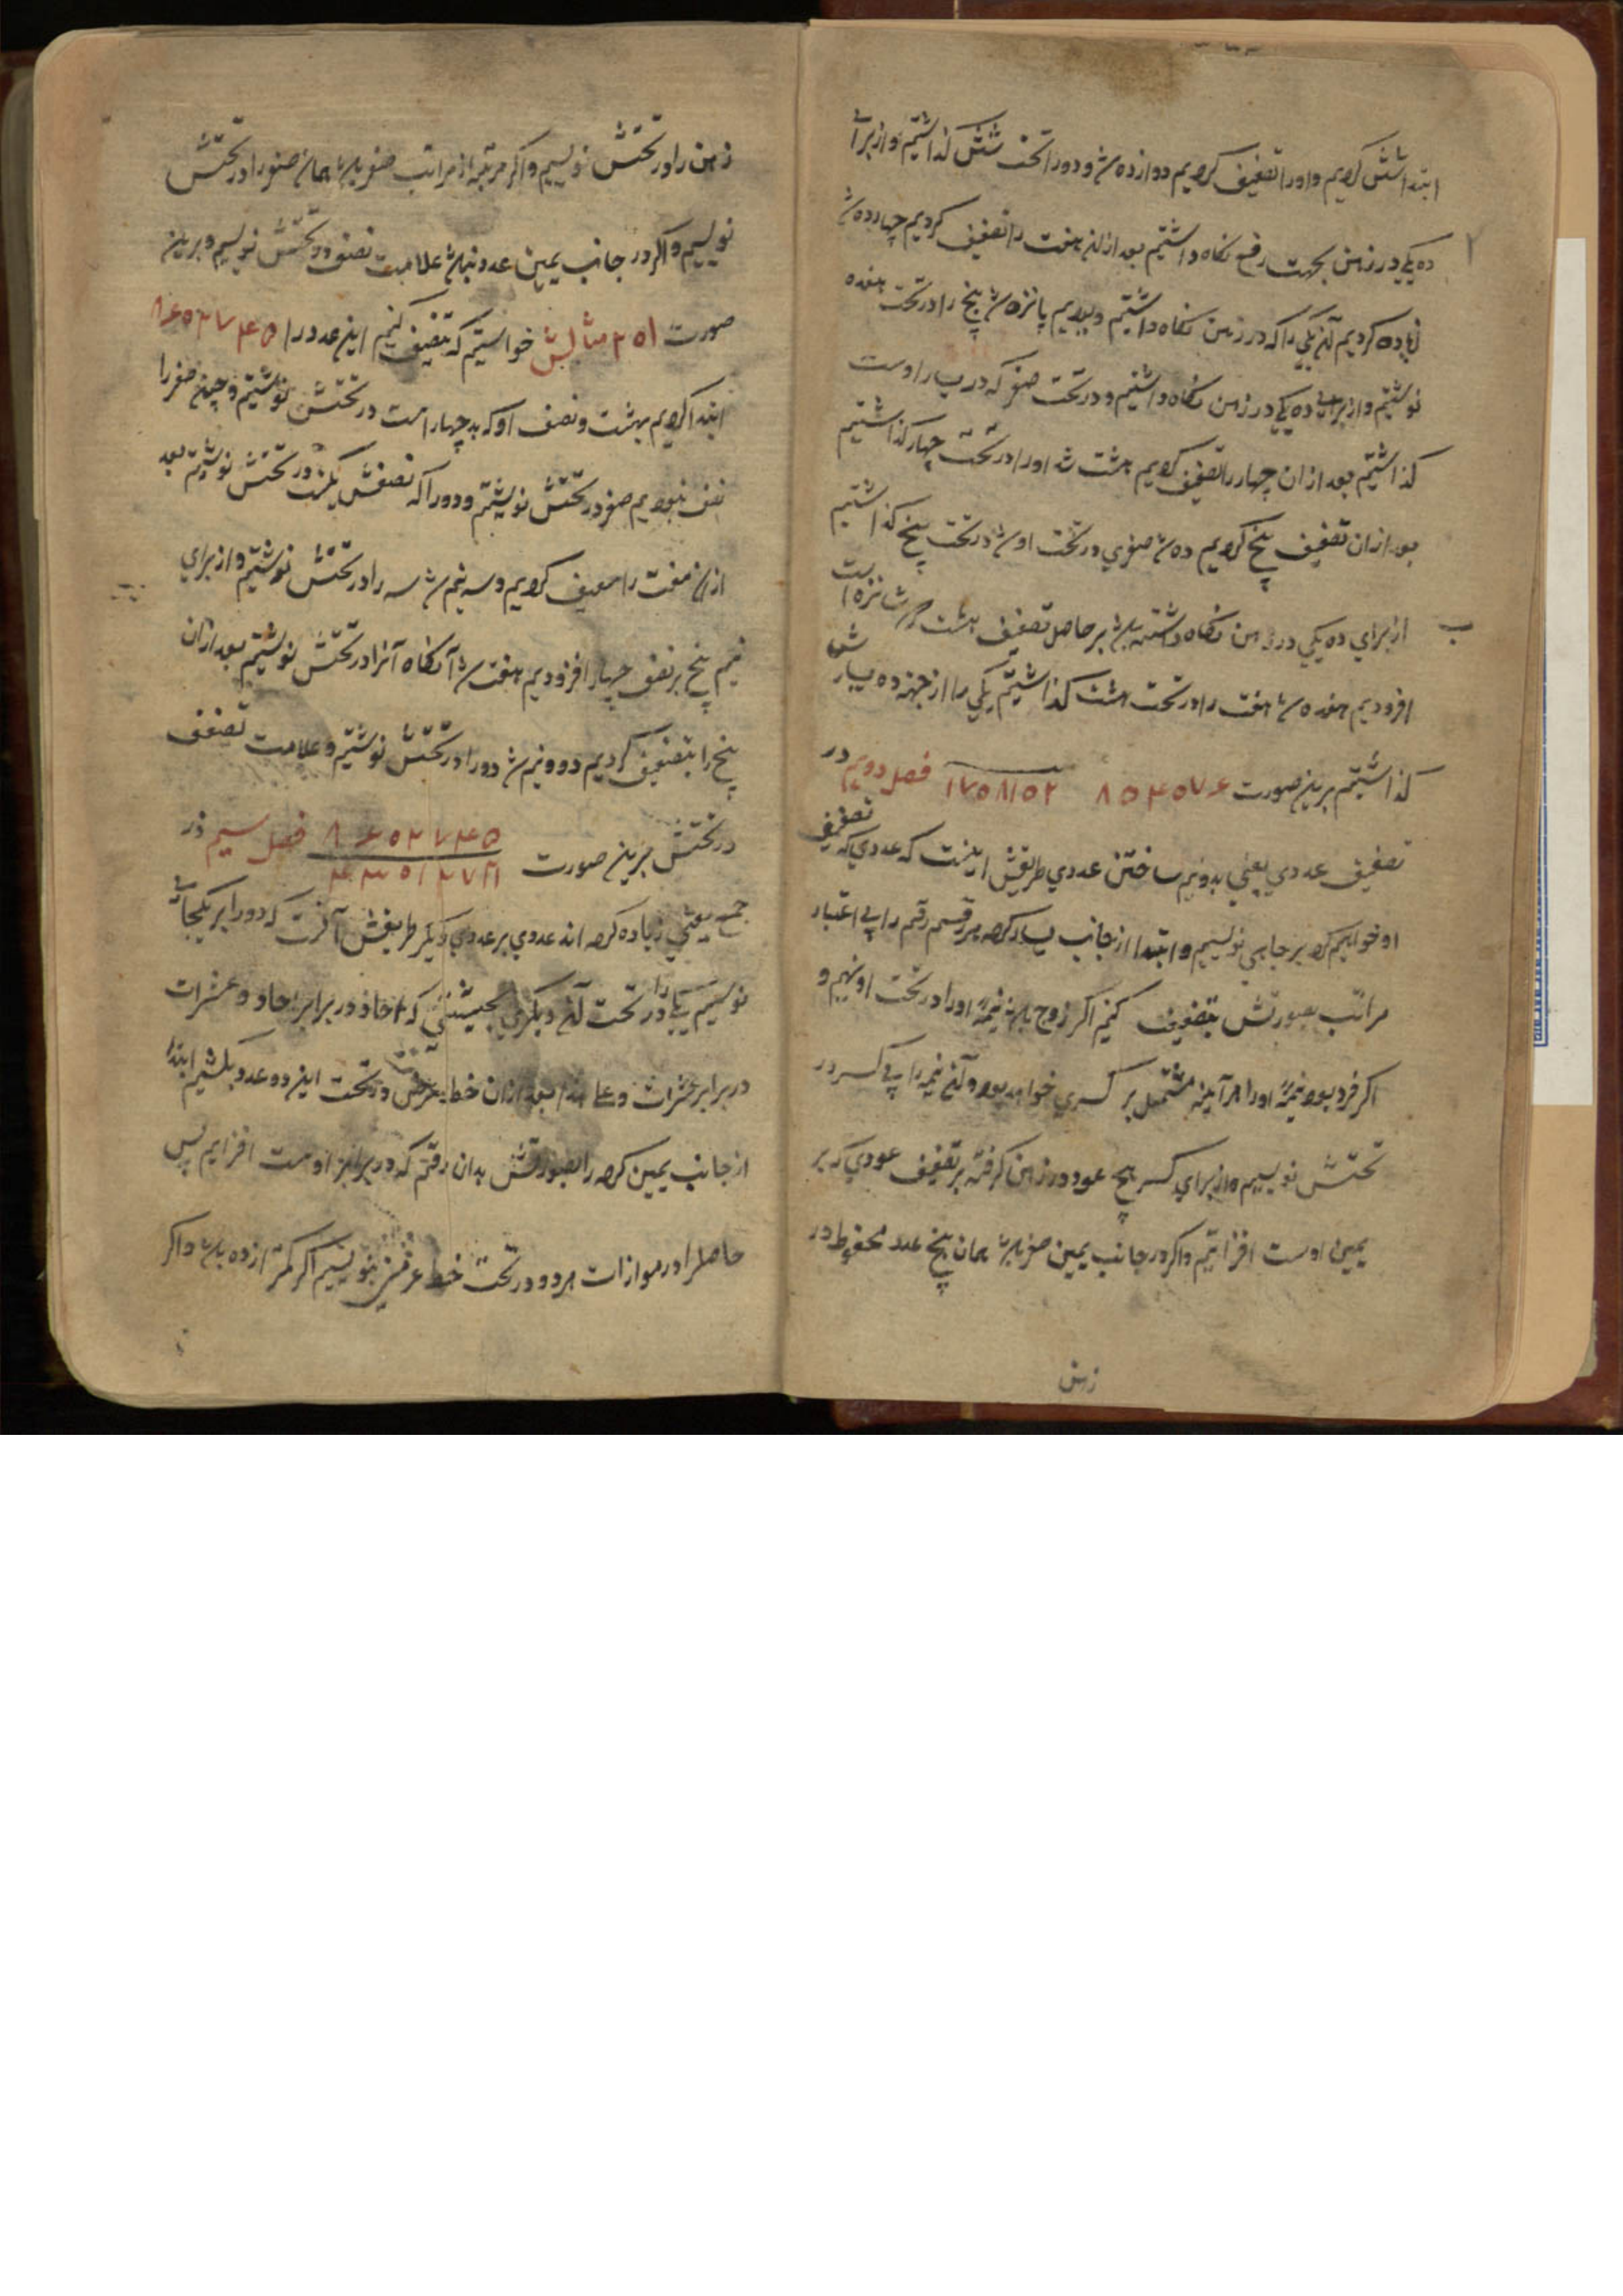 ابتدا شش کردیم و او را تضعیف کردیم دوازده شد و دو را تحت شش گذاشتیم و از برای
ده یکی در ذهن بجهت رفع نگاه داشتیم بعد از ان هفت را تضعیف کردیم چهارده شد
زیاده کردیم آن یکی را که در ذهن نگاه داشتیم و بودیم پانزده شد پنج را در تحت هفده
نوشتیم و از برای ده یکی در ذهن نگاه داشتیم و در تحت صفر که در یسار اوست
گذاشتیم بعد از ان چهار را تضعیف کردیم هشت شد او را در تحت چهار گذاشتیم
بعد از ان تضعیف پنج کردیم ده شد صفری در تحت او در تحت پنج گذاشتیم
از برای ده یکی در ذهن نگاه داشته باشد بر حاصل تضعیف هشت که شانزده است
افزودیم هفده شد هفت را در تحت هشت گذاشتیم یکی را از جهت ده یسارش
گذاشتیم برین صورت ۸۵۴۵۷۶ ۱۷۵۸۱۵۲ فصل دویم در
تصنیف عددی یعنی بدو نیم ساختن عددی طریقش اینست که عددی که تضعیف
او خواهیم کرد بر جایی نویسیم و ابتدا از جانب یسار کرده هر قسم رقم را بی اعتبار
مراتب بصورتش تنصیف کنیم اگر زوج باشد نیمهٔ او را در تحت او نهیم و
اگر فرد بود نیمهٔ او را هر آینه مشتمل بر کسری خواهد بود و آن نیمه را بی کسر در
تحتش نویسیم و از برای کسر پنج عدد در ذهن گرفته بر تنصیف عددی که بر
یمین اوست افزائیم و اگر در جانب یمین صفر باشد همان پنج عدد محفوظ در
ذهن
ذهن را در تحتش نویسیم و اگر مرتبهٔ از مراتب صفر باشد همان صفر را در تحتش
نویسیم و اگر در جانب یمین عدد نباشد علامت نصف در تحتش نویسیم و برین
صورت مثالش خواستیم که تنصیف کنیم این عدد را ۸۶۰۲۷۴۵
ابتدا کردیم بهشت و نصف او که چهار است در تحتش نوشتیم و چون صفر را
نصف نبود صفر در تحتش نوشتیم و دو را که نصفش یکست در تحتش نوشتیم بعد
از ان هفت را تنصیف کردیم و سه نیم شد سه را در تحتش نوشتیم و از برای
نیم پنج بر نصف چهار افزودیم هفت شد آنگاه آنرا در تحتش نوشتیم بعد از ان
پنج را بتنصیف کردیم دو و نیم شد دو را در تحتش نوشتیم و علامت تصنیف
در تحتش برین صورت ۸۶۰۲۷۴۵ فصل سیم در
جمع یعنی زیاده کردن عددی بر عددی دیگر طریقش آنست که دو را بر یکجای
نویسیم یکی را در تحت آن دیگری بحیثیتی که احاد در برابر احاد و عشرات
در برابر عشرات و علی هذا بعد از ان خط عرضی در تحت این دو عدد بکشیم ابتدا
از جانب یمین کرده را بصورتش بدان رقم که در برابر اوست افزایم پس
حاصل را در موازات هر دو در تحت خط عرضی بنویسیم اگر کمتر از ده باشد و اگر